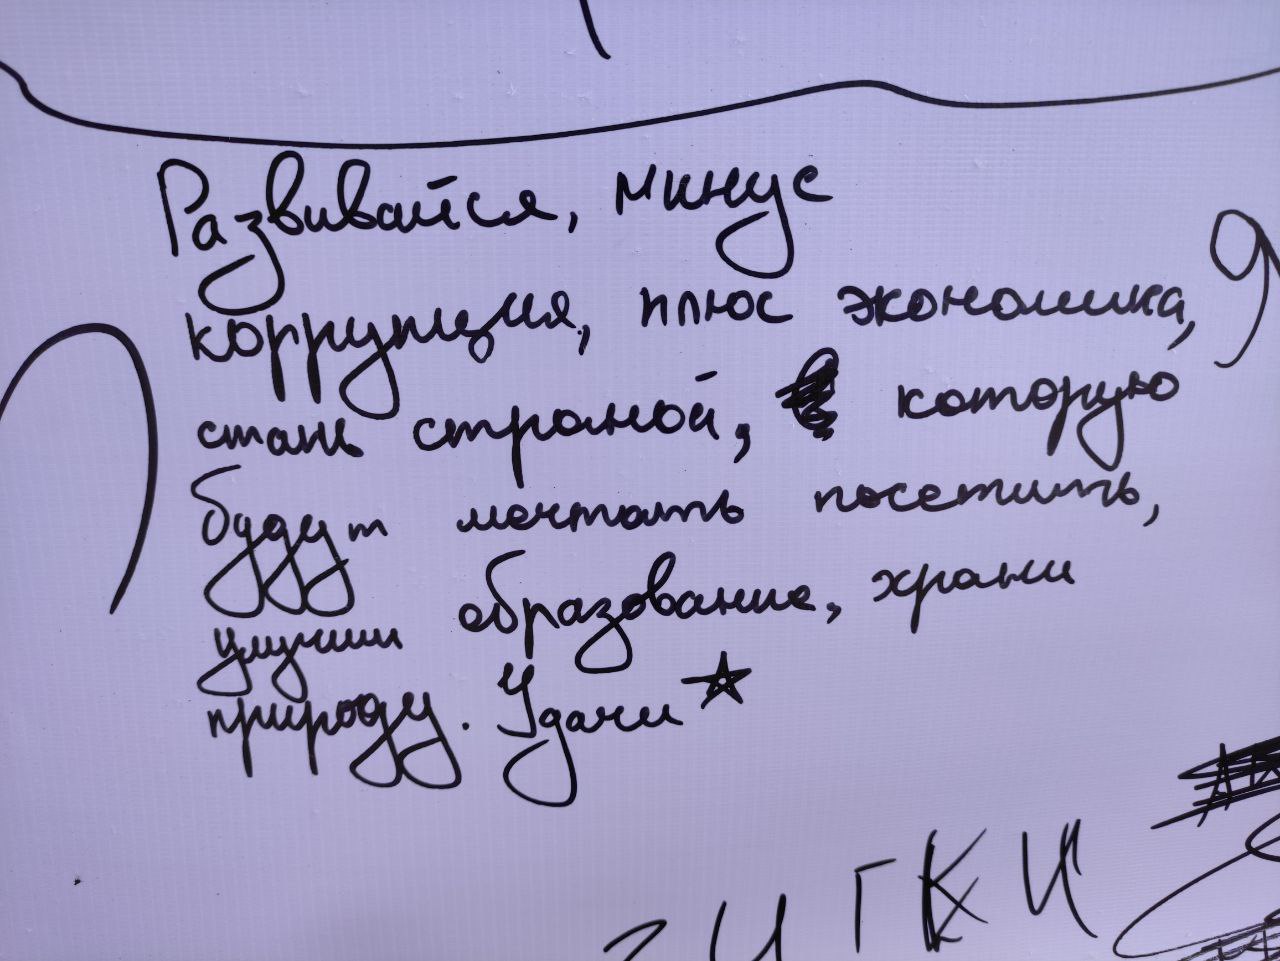 Развивайся, минус
коррупция, плюс экономика,
стань страной, которую
будут мечтать посетить,
улучши образование, храни
природу. Удачи